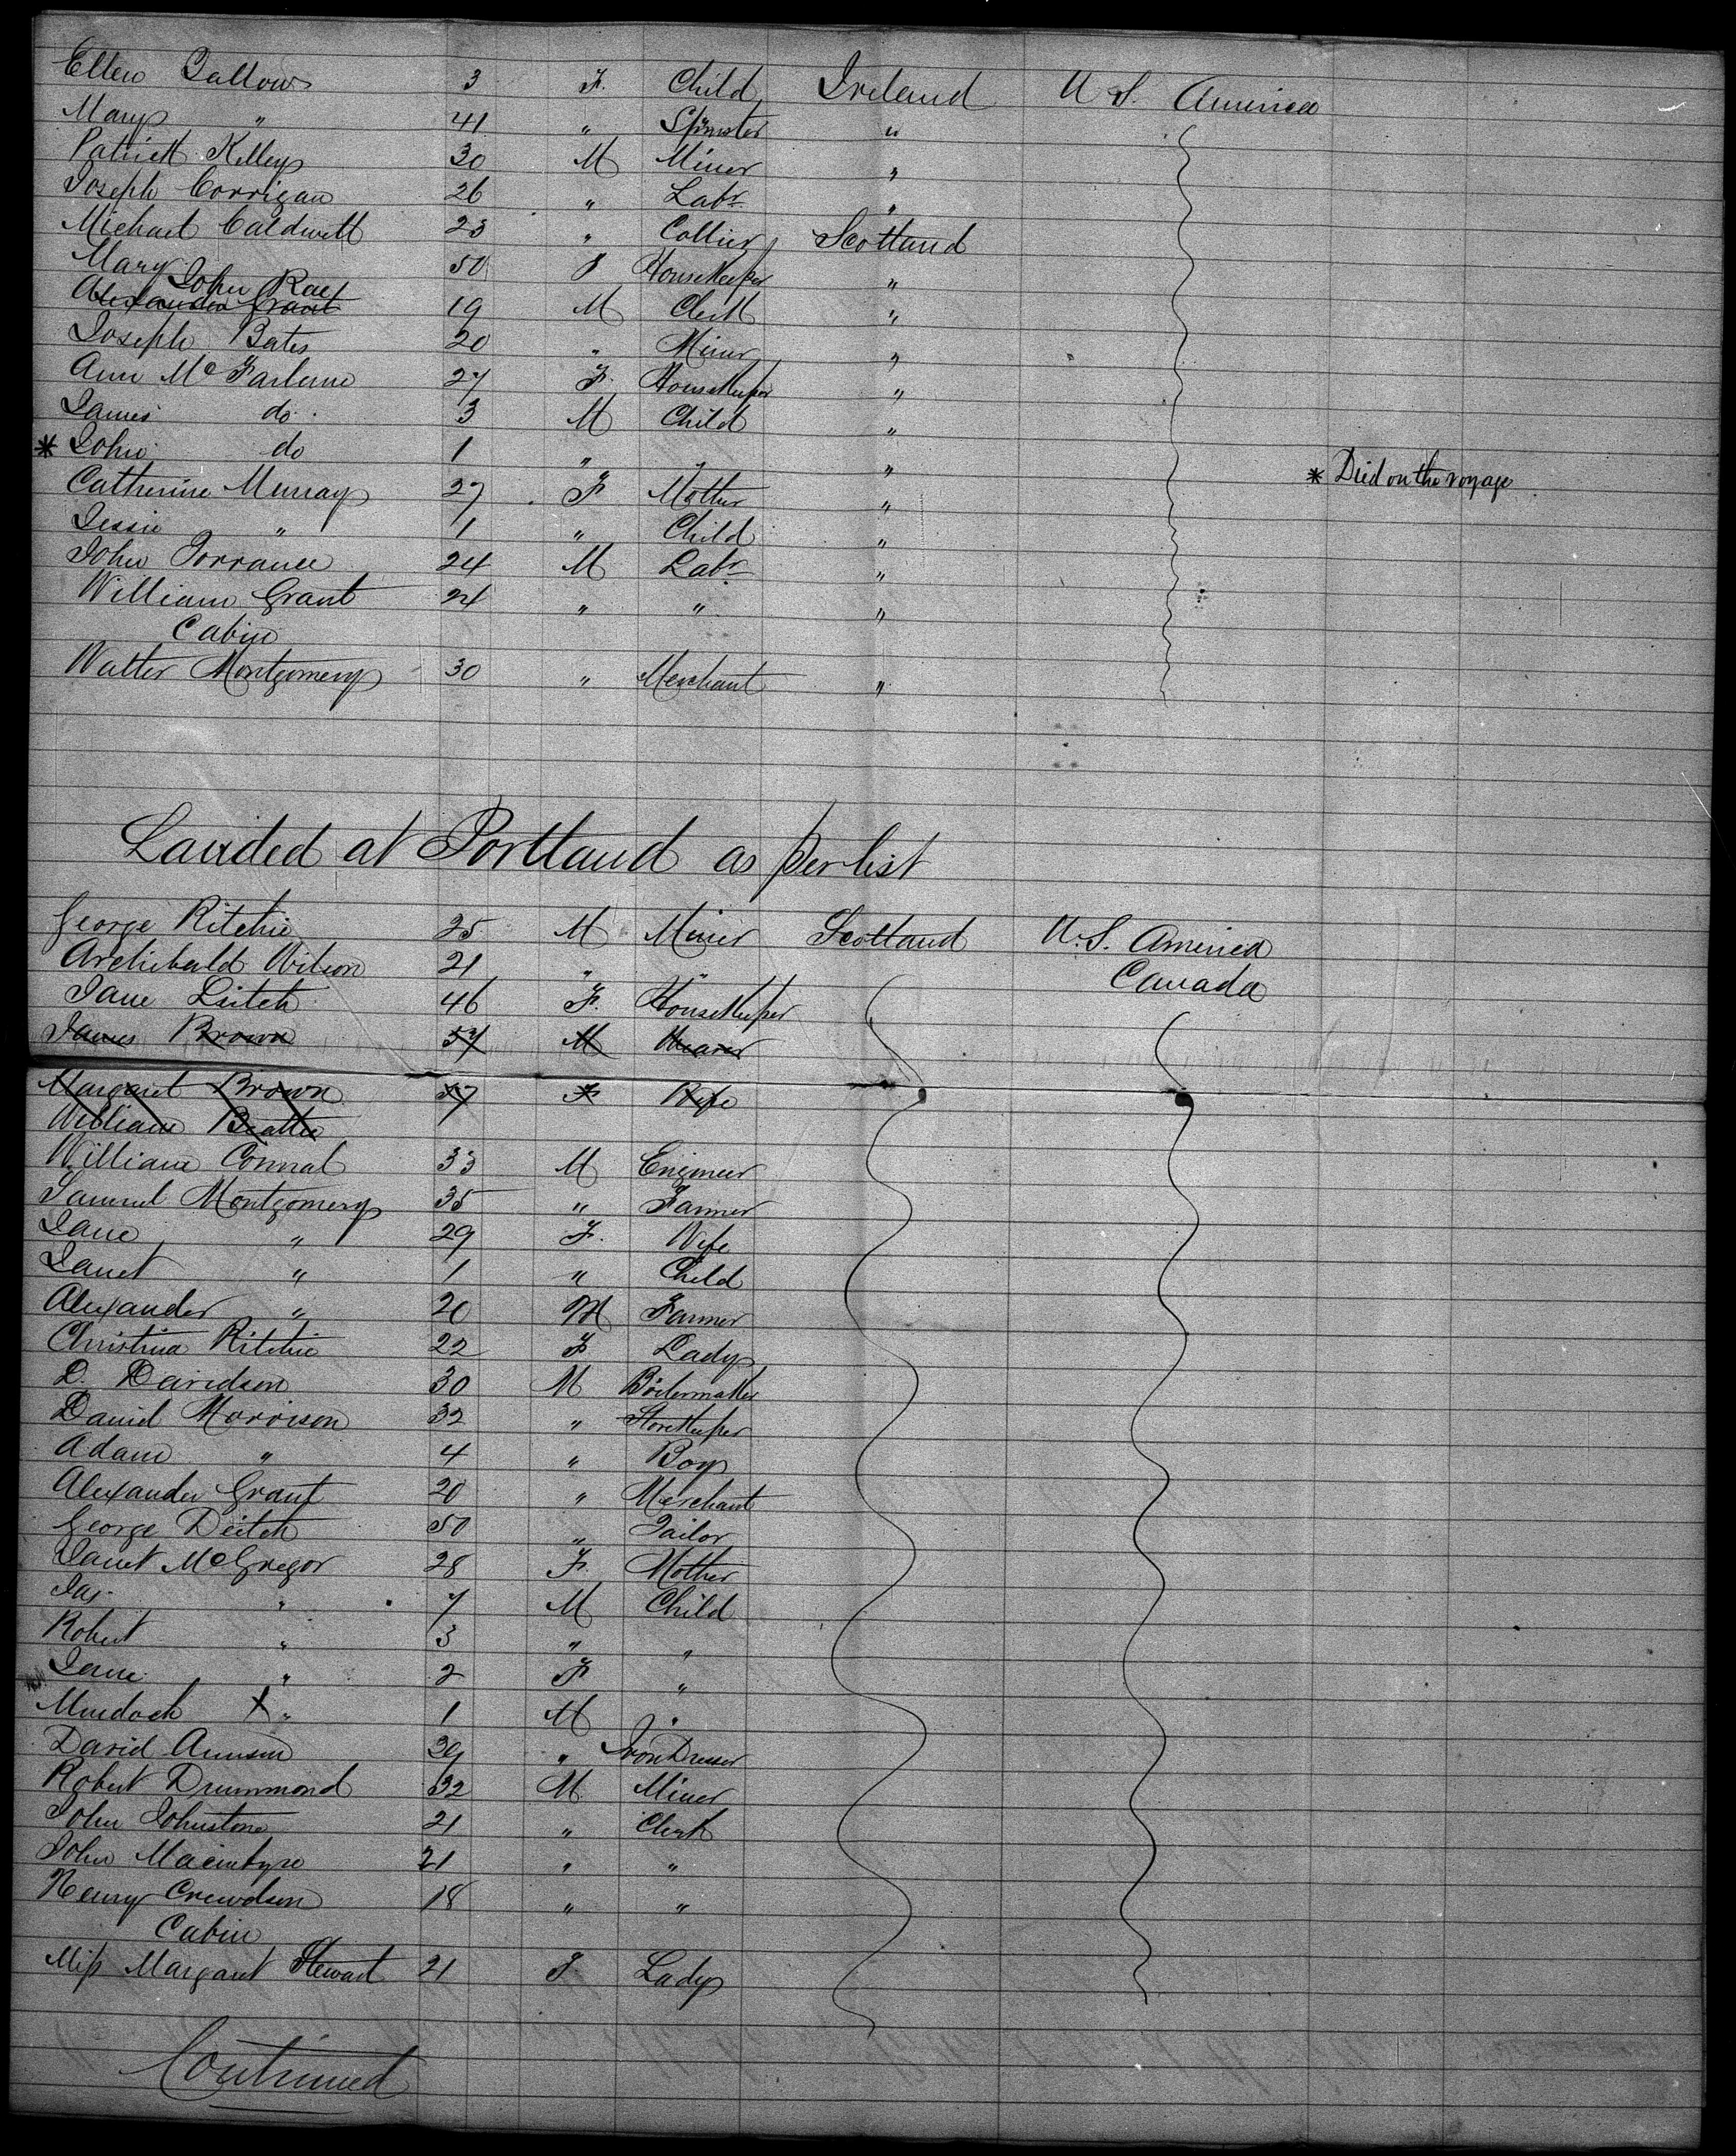 Ellen Gallow 3 F. Child Ireland U S. America
Mary " 41 " Spinster "
Patrick Kelley 30 M Miner "
Joseph Corrigan 26 " Labr "
Michael Caldwell 23 " Collier Scotland
Mary " 50 F Housekeeper "
John Rae
Alexander Grant 19 M Clerk "
Joseph Bates 20 " Miner "
Ann McFarlane 27 F. Housekeeper "
James do. 3 M Child "
* John do 1 " " " * Died on the voyage
Catherine Murray 27 F Mother "
Jessie " 1 " Child "
John Torrance 24 M Labr "
William Grant 24 " " "
Cabin
Walter Montgomery 30 " Merchant "
Landed at Portland as per list
George Ritchie 25 M Miner Scotland U.S. America
Archibald Wilson 21 " " Canada
Jane Leitch 46 F. Housekeeper
James Brown 54 M Weaver
Margaret Brown 57 F Wife
William Beattie
William Connal 33 M Engineer
Samuel Montgomery 35 " Farmer
Jane " 29 F. Wife
Janet " 1 " Child
Alexander " 20 M Farmer
Christina Ritchie 22 F Lady
D. Davidson 30 M Boilermaker
David Morrison 32 " Storekeeper
Adam " 4 " Boy
Alexander Grant 20 " Merchant
George Deitch 50 " Tailor
Janet McGregor 28 F. Mother
Jas " 7 M Child
Robert " 3 " "
Jane " 2 F "
Murdoch X " 1 M "
David 39 " Iron Dresser
Robert Drummond 32 M. Miner
John Johnstone 21 " Clerk
John Macintyre 21 " "
Henry Crewdson 18 " "
Cabin
Miss Margaret Stewart 21 F. Lady
Continued